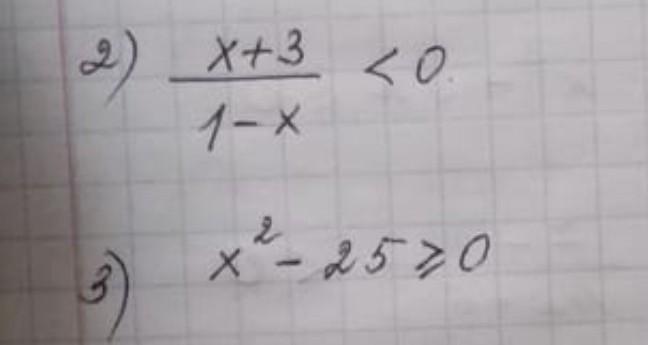 2) x+3/1-x < 0
3) x² - 25 ⩾ 0